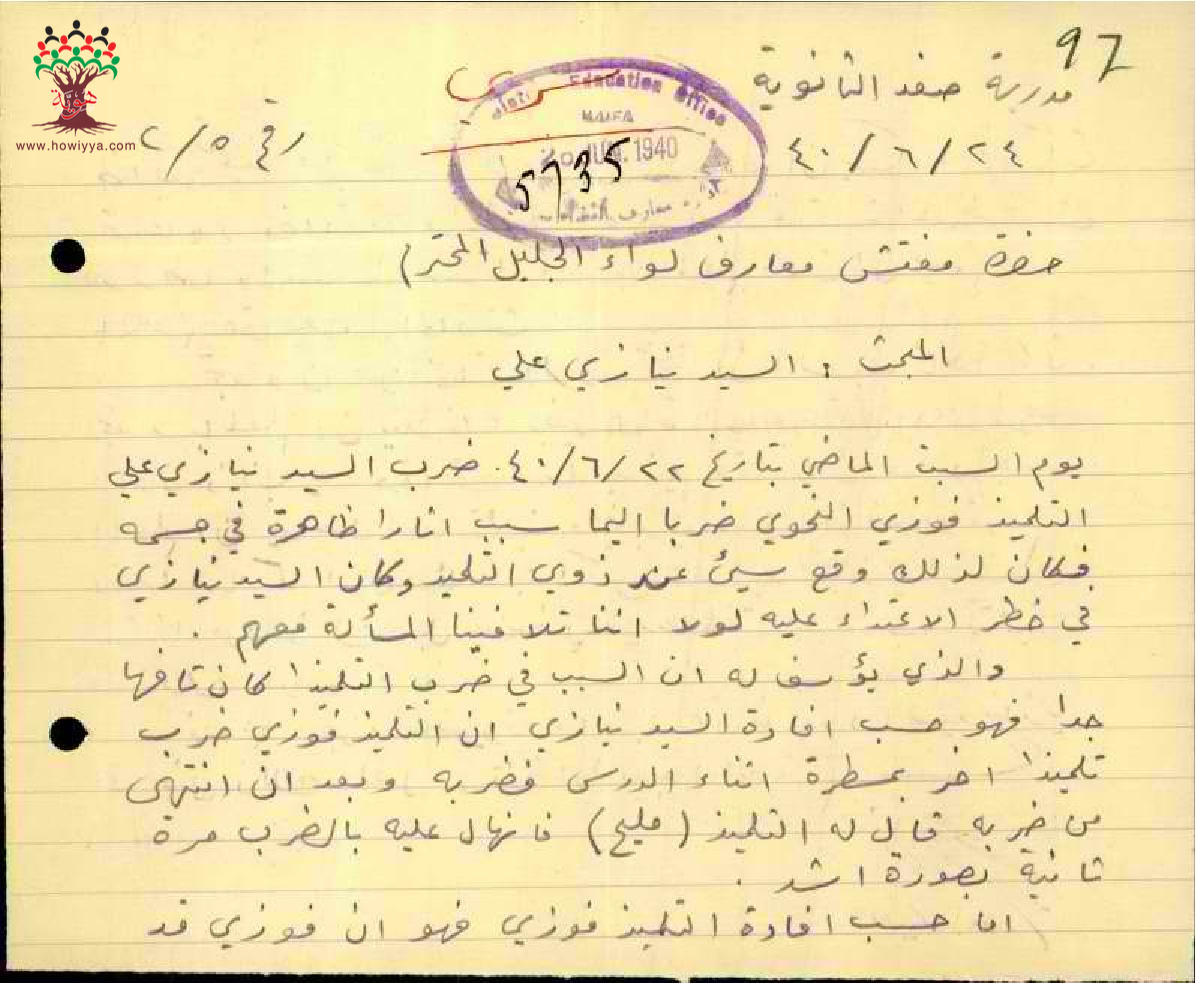 97
مدرسة صفد الثانوية
District Education Office
HAIFA
JUN. 1940
5735
٢٤/٦/٤٠
رقم ٥/٢
www.howiyya.com
حضرة مفتش معارف لواء الجليل المحترم
المبحث : السيد نيازي علي
يوم السبت الماضي بتاريخ ٢٢/٦/٤٠ ضرب السيد نيازي علي
التلميذ فوزي النحوي ضربا اليما سبب اثارا ظاهرة في جسمه
فكان لذلك وقع سيئ عند ذوي التلميذ وكان السيد نيازي
في خطر الاعتداء عليه لولا اننا تلافينا المسألة معهم .
والذي يؤسف له ان السبب في ضرب التلميذ كان تافها
جدا فهو حسب افادة السيد نيازي ان التلميذ فوزي ضرب
تلميذا اخر بمسطرة اثناء الدرس فضربه وبعد ان انتهى
من ضربه قال له التلميذ (مليح) فانهال عليه بالضرب مرة
ثانية بصورة اشد .
اما حسب افادة التلميذ فوزي فهو ان فوزي قد